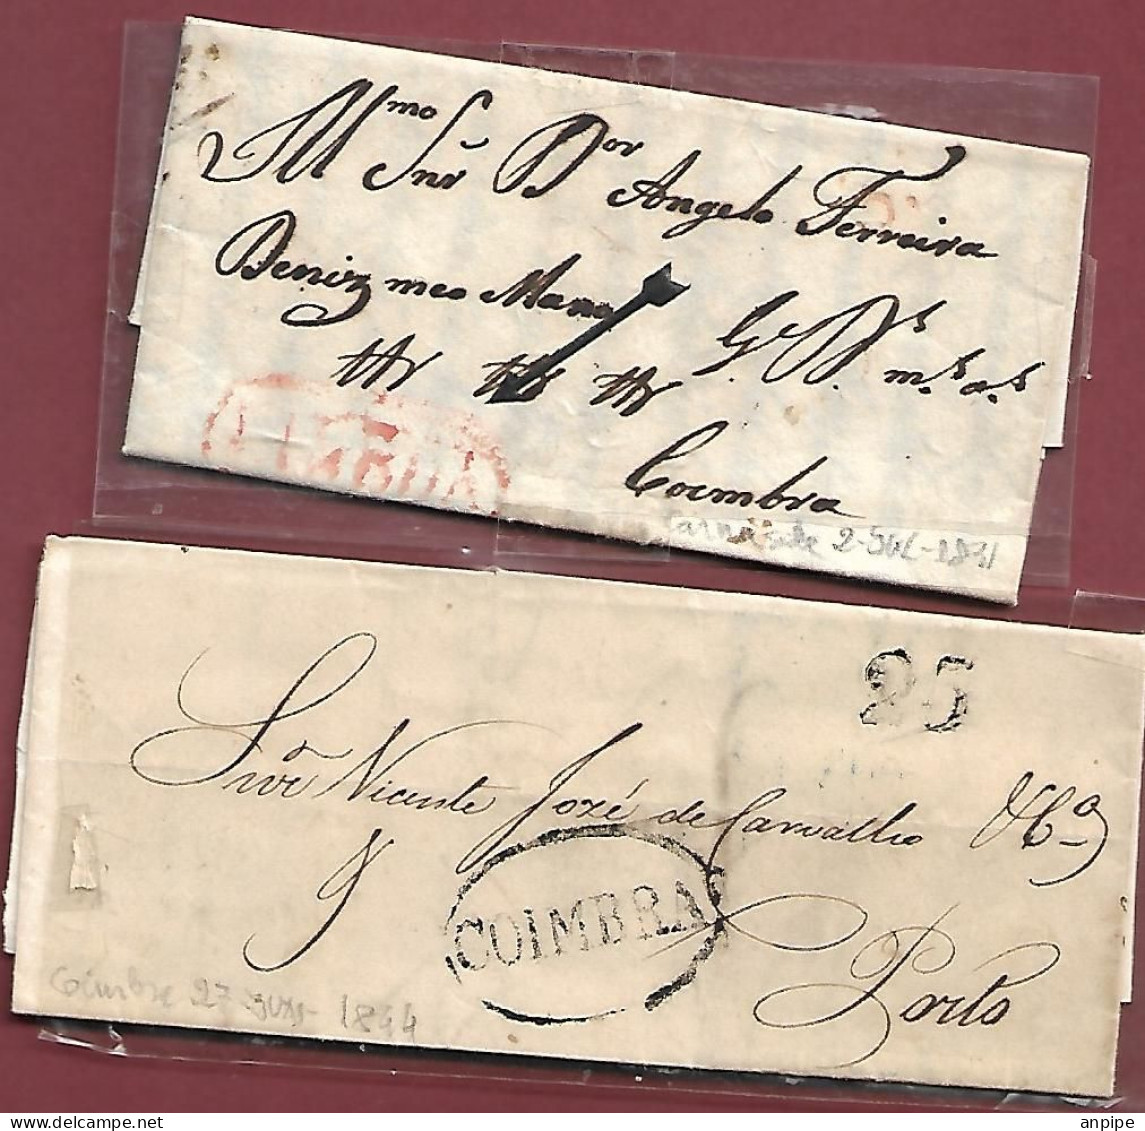 Illmo Snr Dor Angelo Ferreira
Beniz meo Mano
Ge Ds ms as
Coimbra
LISBOA
2-JUL-1841
25
Snr Vicente José de Carvalho & Ca
COIMBRA
Porto
Coimbra 27 1844
delcampe.net
anpipe